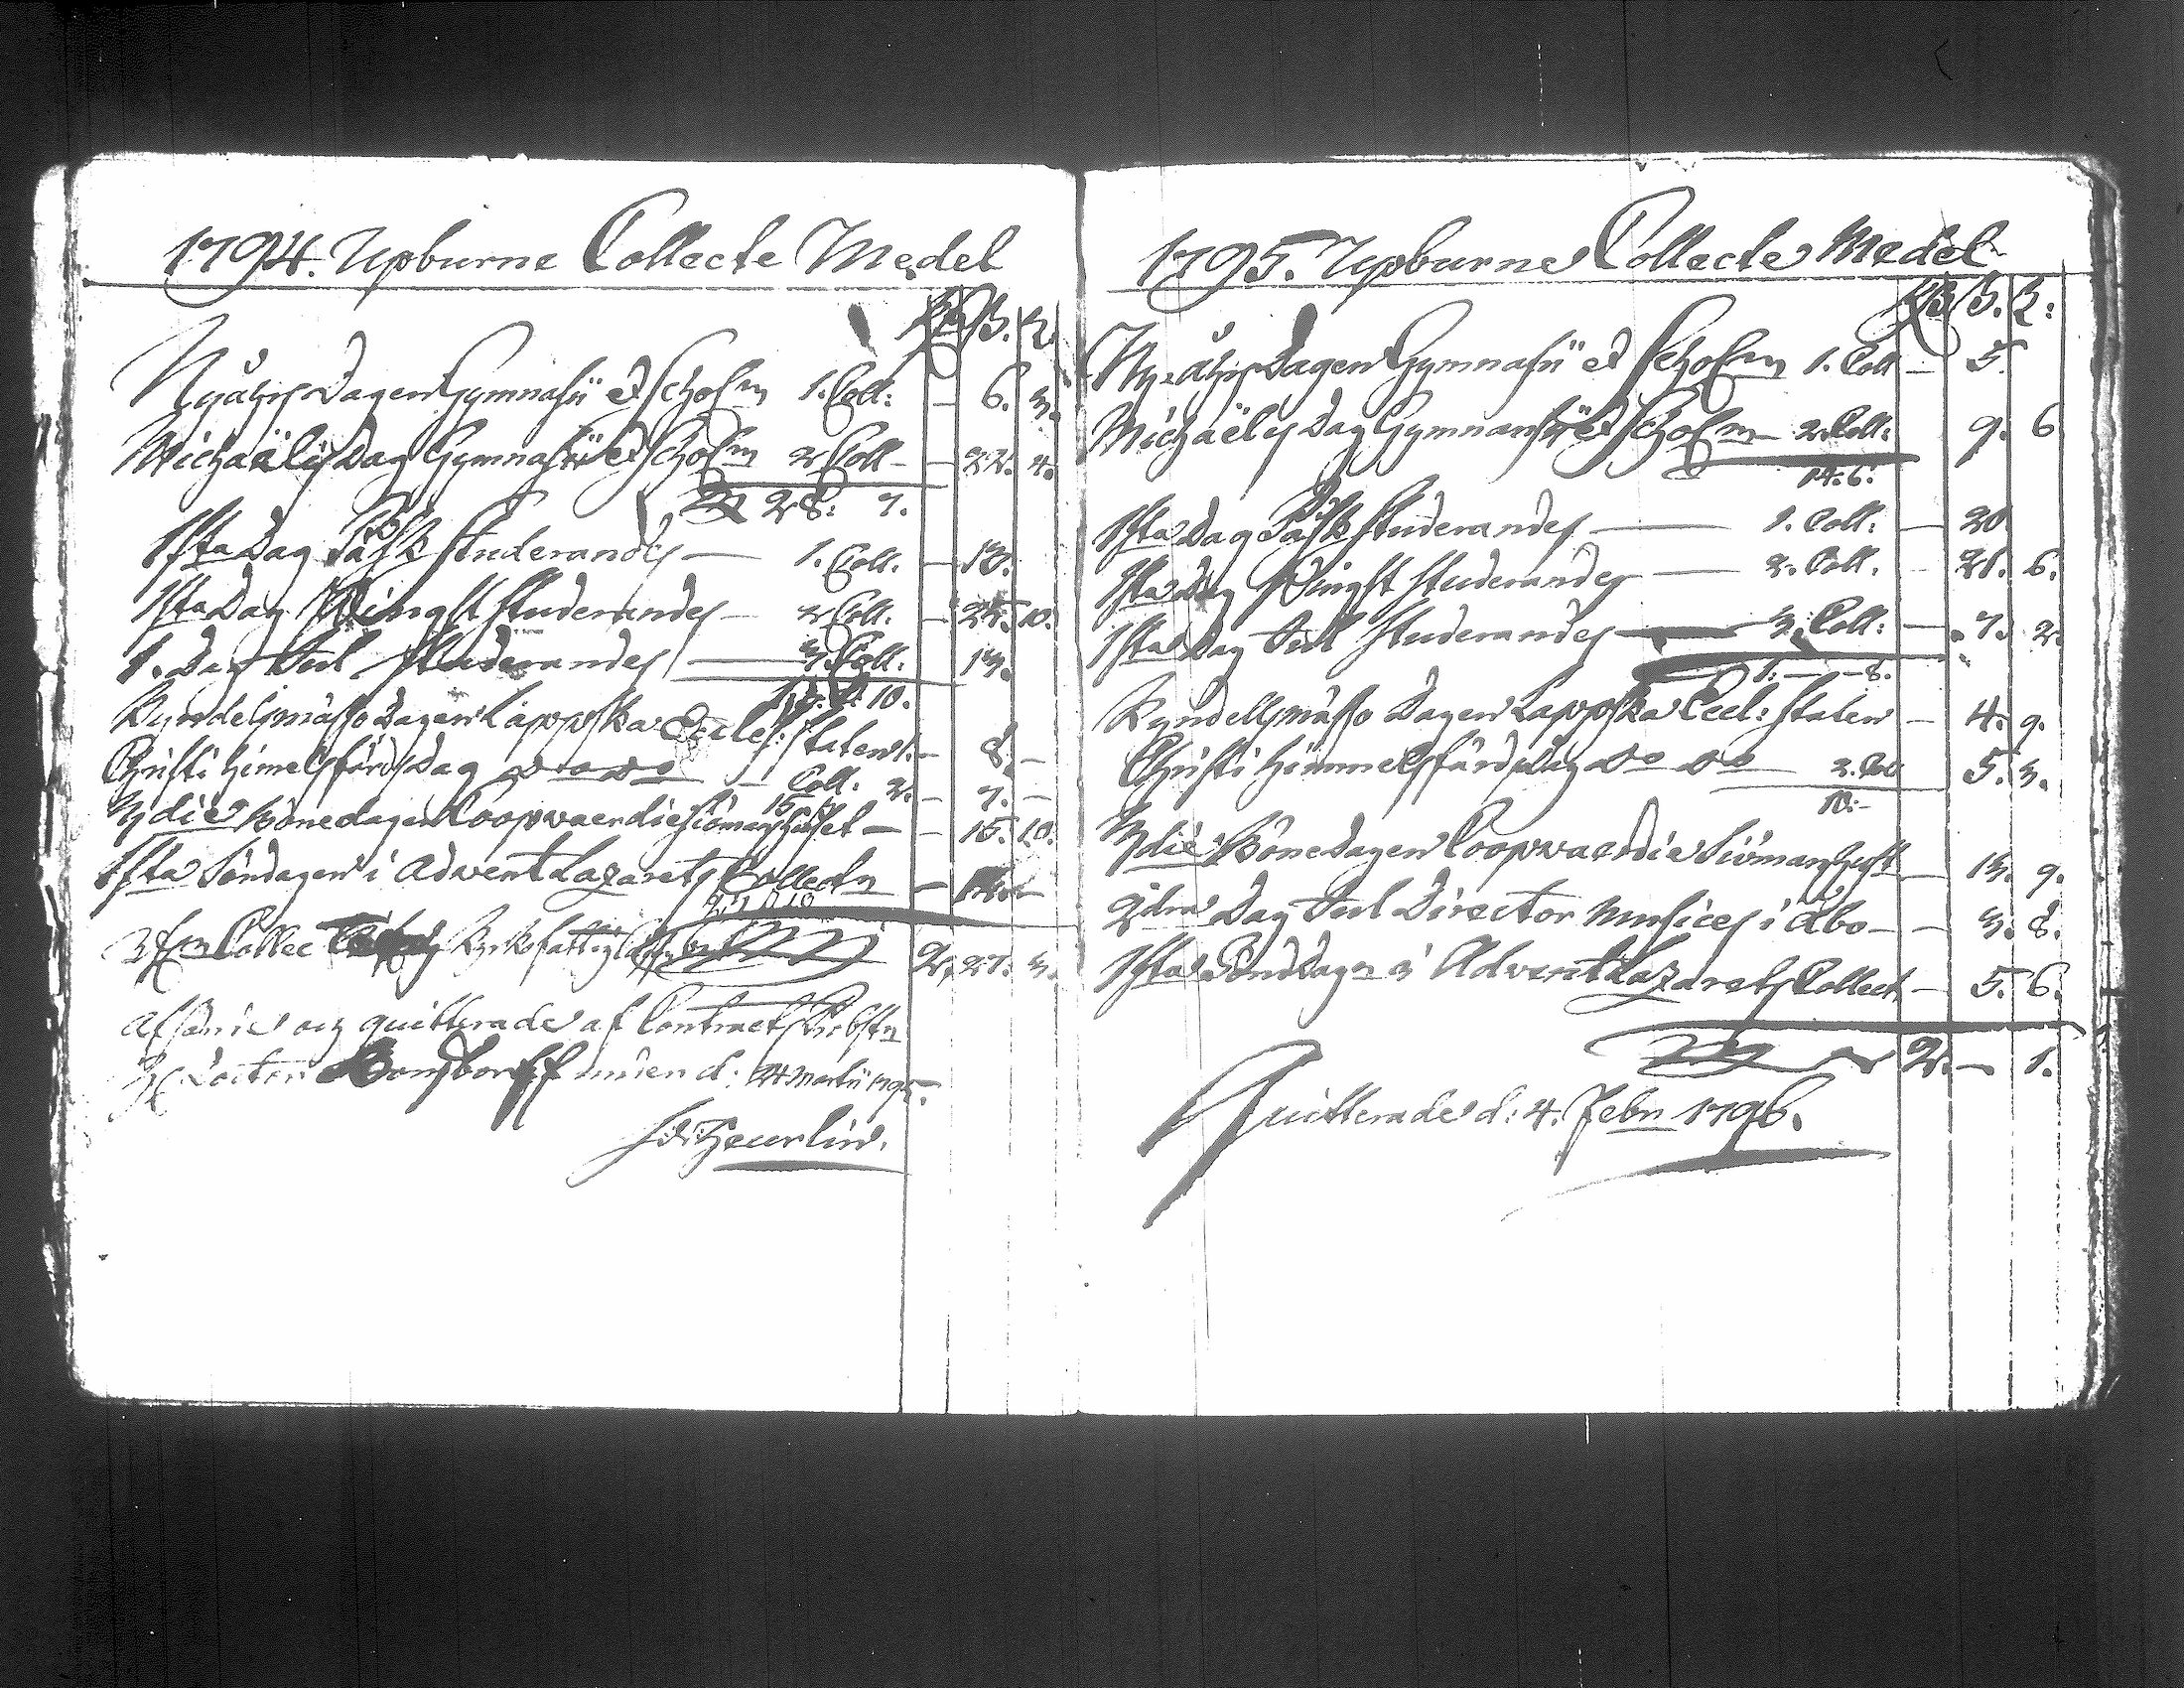 1794. Upburne Collecte Medel
Rd ß. r.
Nyåhrs Dagen Gymnasii et Scholm 1. Coll: — 6. 3.
Michaëlis Dag Gymnasii et Scholm 2 Coll — 22. 4.
28: 7.
1sta Dag Påsk Studerandes — 1. Coll. — 13.
1sta Dag Pingst Studerandes — 2 Coll. — 25. 10.
1. Dag Jul Studerandes — 3. Coll. 13.
10.
Kyndelsmässo Dagen Lappska Eccles: Staten 1. — 8. —
Christi Himelsfärds Dag do do — Coll. 2. — 7. —
15
3die Bönedagen Coopvaerdie Siömanshuset — — 15. 10.
1sta Söndagen i Advent Lazarets Collectn —
Collec Kyrkofattig 2, 27. 3.
Af Senie och quitterade af Contracts Probstn
H Doctor Bonsdorff unden d. 24 Martii 1795.
Heurlin.
1795. Upburne Collecte Medel
Rd ß. r:
Ny-åhrs Dagen Gymnasii et Scholm 1. Coll — 5.
Michaëlis Dag Gymnansii et Scholm — 2 Coll: 9. 6
14: 6.
1sta Dag Påsk Studerandes — 1. Coll: — 20
1sta Dag Pingst Studerandes — 2. Coll. — 21. 6.
1sta Dag Jul Studerandes — 3. Coll: — 7. 2.
1: — — 8.
Kyndellsmässo Dagen Lappska Eccl: Staten — 4. 9.
Christi Himmelsfärds Dag do do 2. Coll 5. 3.
10: —
3die Bönedagen Coopvaerdie Siömanshuset — 13. 9.
2dra Dag Jul Director Musices i Åbo — — 3. 8.
1sta Sönddagen i Advent Lazarets Collect — 5. 6.
2. — 1.
Quitterade d: 4. Febr 1796.